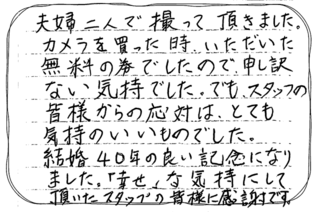 夫婦二人で撮って頂きました。
カメラを買った時、いただいた
無料の券でしたので申し訳
ない気持でした。でも、スタッフの
皆様からの応対は、とても
気持のいいものでした。
結婚40年の良い記念になり
ました。「幸せ」な気持にして
頂いたスタッフの皆様に感謝です。